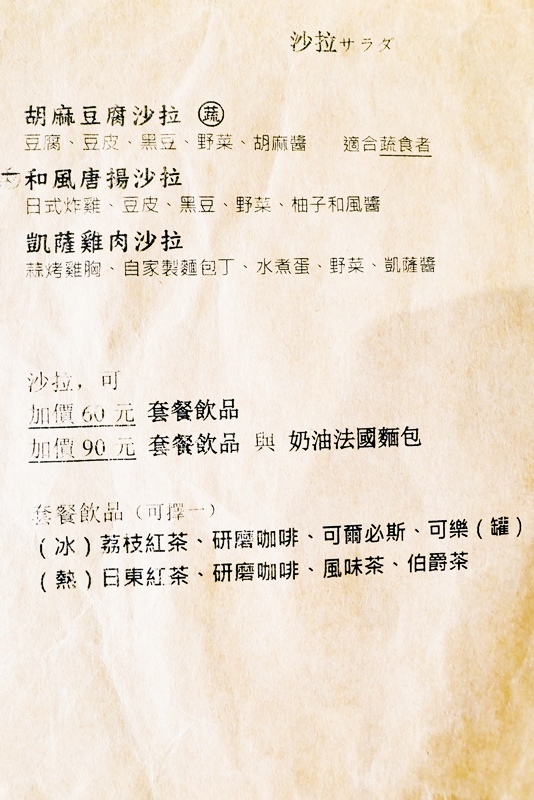 沙拉サラダ
胡麻豆腐沙拉 ㊝蔬
豆腐、豆皮、黑豆、野菜、胡麻醬 適合蔬食者
和風唐揚沙拉
日式炸雞、豆皮、黑豆、野菜、柚子和風醬
凱薩雞肉沙拉
蒜烤雞胸、自家製麵包丁、水煮蛋、野菜、凱薩醬
沙拉，可
加價 60 元 套餐飲品
加價 90 元 套餐飲品 與 奶油法國麵包
套餐飲品（可擇一）
（冰）荔枝紅茶、研磨咖啡、可爾必斯、可樂（罐）
（熱）日東紅茶、研磨咖啡、風味茶、伯爵茶